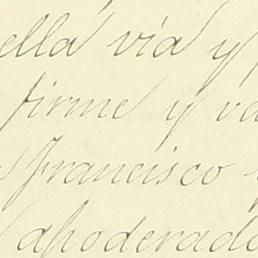 ella via y
firme y va
Francisco
apoderado